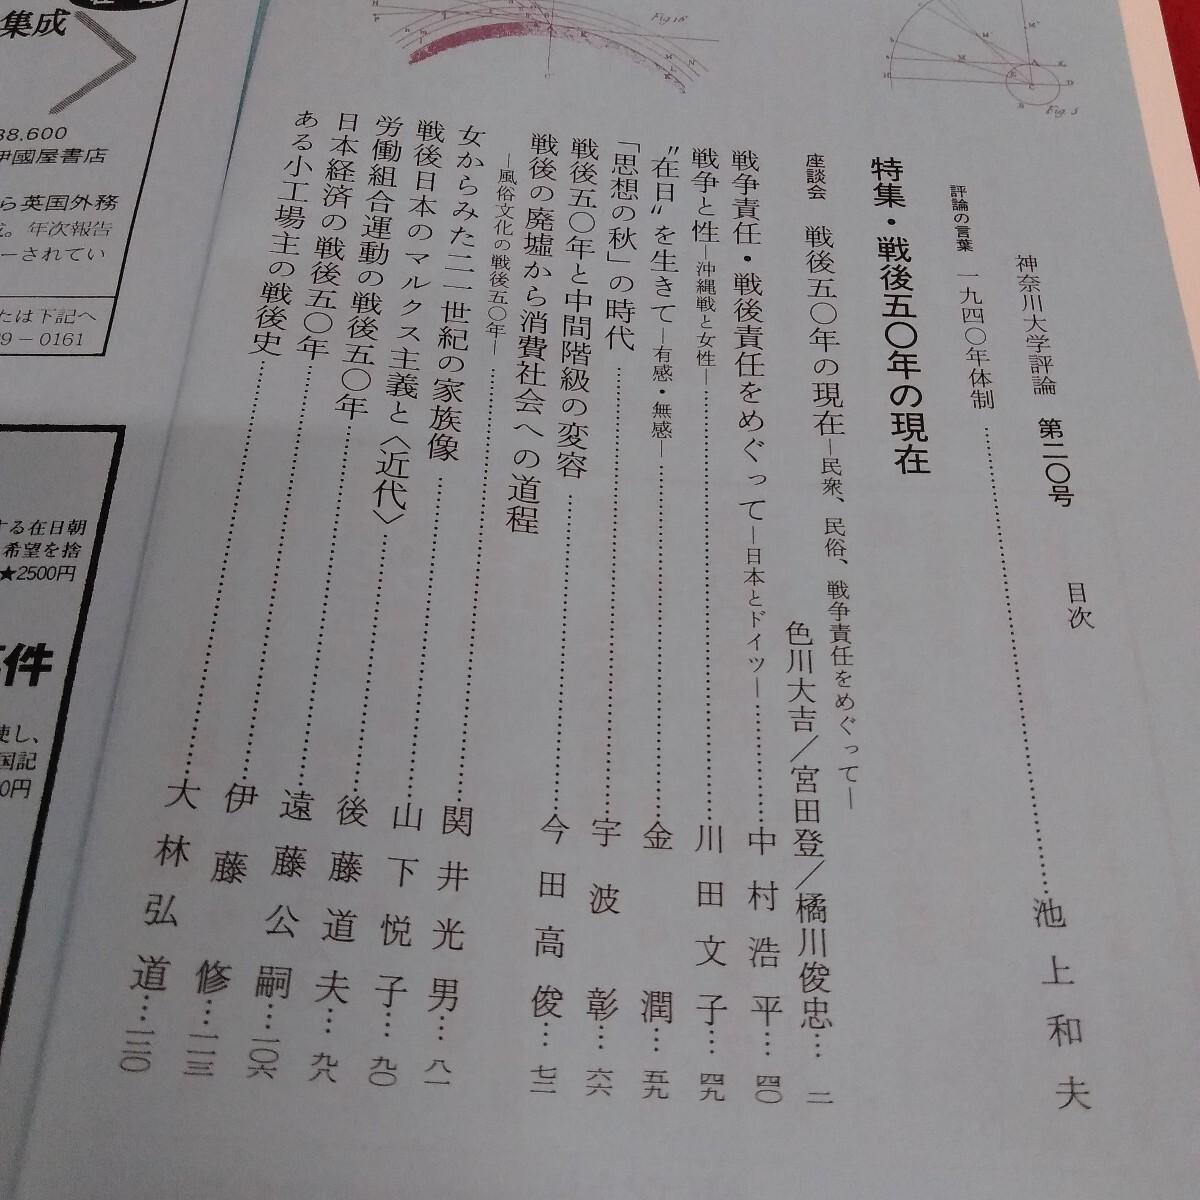 神奈川大学評論 第二〇号 目次
評論の言葉 一九四〇年体制……池上和夫
特集・戦後五〇年の現在
座談会 戦後五〇年の現在―民衆、民俗、戦争責任をめぐって―
色川大吉／宮田登／橘川俊忠… 二
戦争責任・戦後責任をめぐって―日本とドイツ―……中村浩平…四〇
戦争と性―沖縄戦と女性―……川田文子…四九
〝在日〟を生きて―有感・無感―……金 潤…五九
「思想の秋」の時代……宇波 彰…六六
戦後五〇年と中間階級の変容……今田高俊…七二
戦後の廃墟から消費社会への道程
―風俗文化の戦後五〇年―……関井光男…八一
女からみた二一世紀の家族像……山下悦子…九〇
戦後日本のマルクス主義と〈近代〉……後藤道夫…九八
労働組合運動の戦後五〇年……遠藤公嗣…一〇六
日本経済の戦後五〇年……伊藤 修…一一三
ある小工場主の戦後史……大林弘道…一二〇
Fig 16
Fig. 5
集成
38,600
伊國屋書店
ら英国外務
年次報告
ーされてい
たは下記へ
9－0161
する在日朝
希望を捨
★2500円
件
使し、
国記
0円